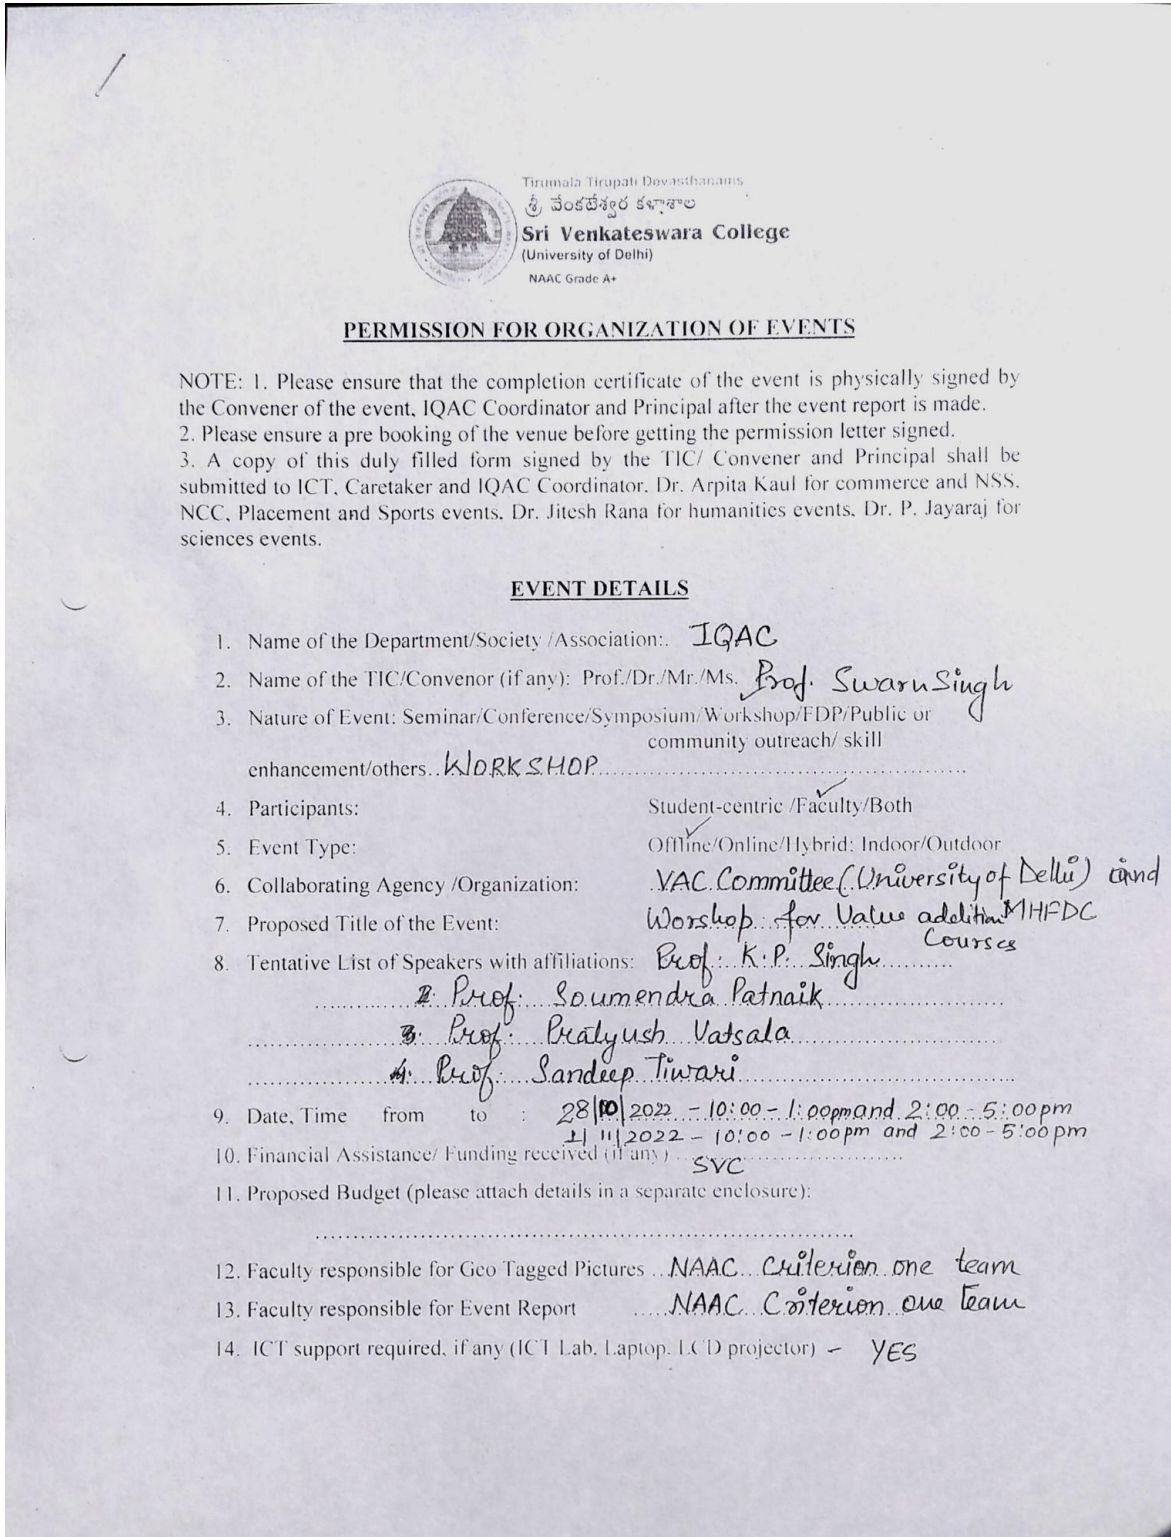 Tirumala Tirupati Devasthanams
శ్రీ వేంకటేశ్వర కళాశాల
Sri Venkateswara College
(University of Delhi)
NAAC Grade A+
PERMISSION FOR ORGANIZATION OF EVENTS
NOTE: 1. Please ensure that the completion certificate of the event is physically signed by
the Convener of the event, IQAC Coordinator and Principal after the event report is made.
2. Please ensure a pre booking of the venue before getting the permission letter signed.
3. A copy of this duly filled form signed by the TIC/ Convener and Principal shall be
submitted to ICT, Caretaker and IQAC Coordinator. Dr. Arpita Kaul for commerce and NSS,
NCC, Placement and Sports events. Dr. Jitesh Rana for humanities events. Dr. P. Jayaraj for
sciences events.
EVENT DETAILS
1. Name of the Department/Society /Association:. IQAC
2. Name of the TIC/Convenor (if any): Prof./Dr./Mr./Ms. Prof. Swarn Singh
3. Nature of Event: Seminar/Conference/Symposium/Workshop/FDP/Public or
community outreach/ skill
enhancement/others..WORKSHOP
4. Participants: Student-centric /Faculty/Both
5. Event Type: Offline/Online/Hybrid: Indoor/Outdoor
6. Collaborating Agency /Organization: VAC Committee (University of Delhi) and
MHFDC
7. Proposed Title of the Event: Worshop for Value addition
Courses
8. Tentative List of Speakers with affiliations: Prof. K.P. Singh
2. Prof. Soumendra Patnaik
3. Prof. Pratyush Vatsala
4. Prof. Sandeep Tiwari
9. Date, Time from to : 28/10/2022 - 10:00 - 1:00pm and 2:00 - 5:00pm
1/11/2022 - 10:00 - 1:00pm and 2:00 - 5:00pm
10. Financial Assistance/ Funding received (if any) SVC
11. Proposed Budget (please attach details in a separate enclosure):
12. Faculty responsible for Geo Tagged Pictures ...NAAC Criterion one team
13. Faculty responsible for Event Report .....NAAC Criterion one team
14. ICT support required, if any (ICT Lab, Laptop, LCD projector) - YES